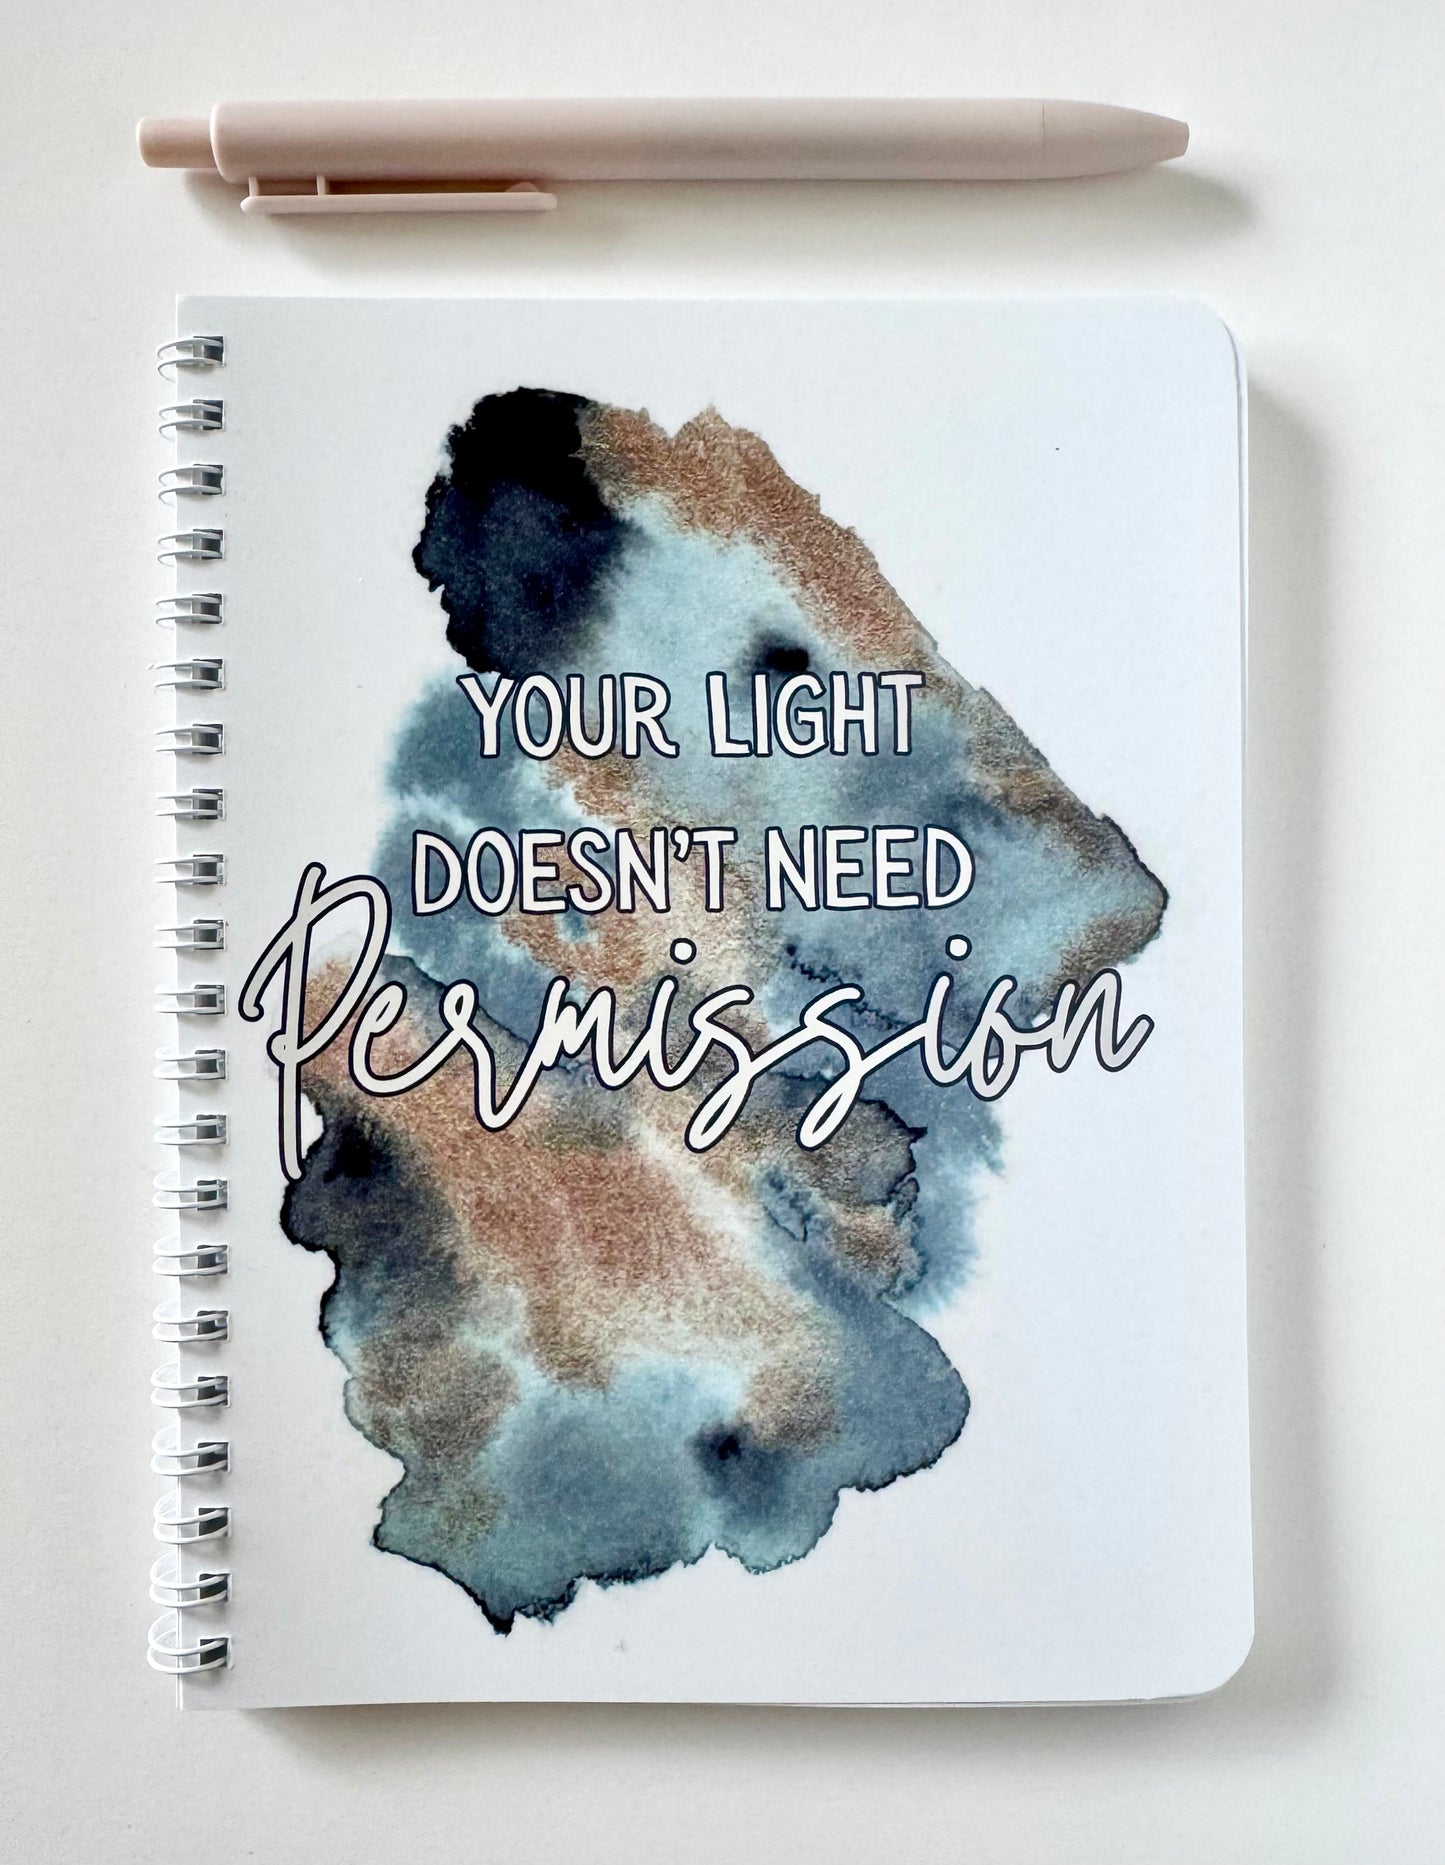 YOUR LIGHT
DOESN'T NEED
Permission